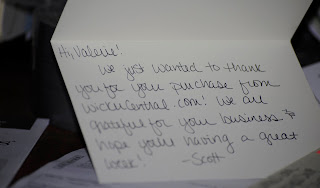 Hi, Valerie!
We just wanted to thank
you for your purchase from
wickucentral.com! We are
grateful for your business &
hope your having a great
week! -Scott